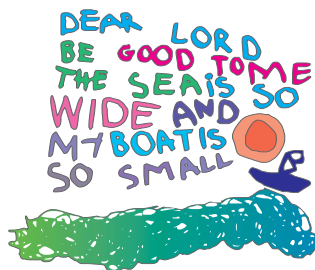 DEAR LORD
BE GOOD TO ME
THE SEA iS SO
WIDE AND
MY BOAT IS
SO SMALL